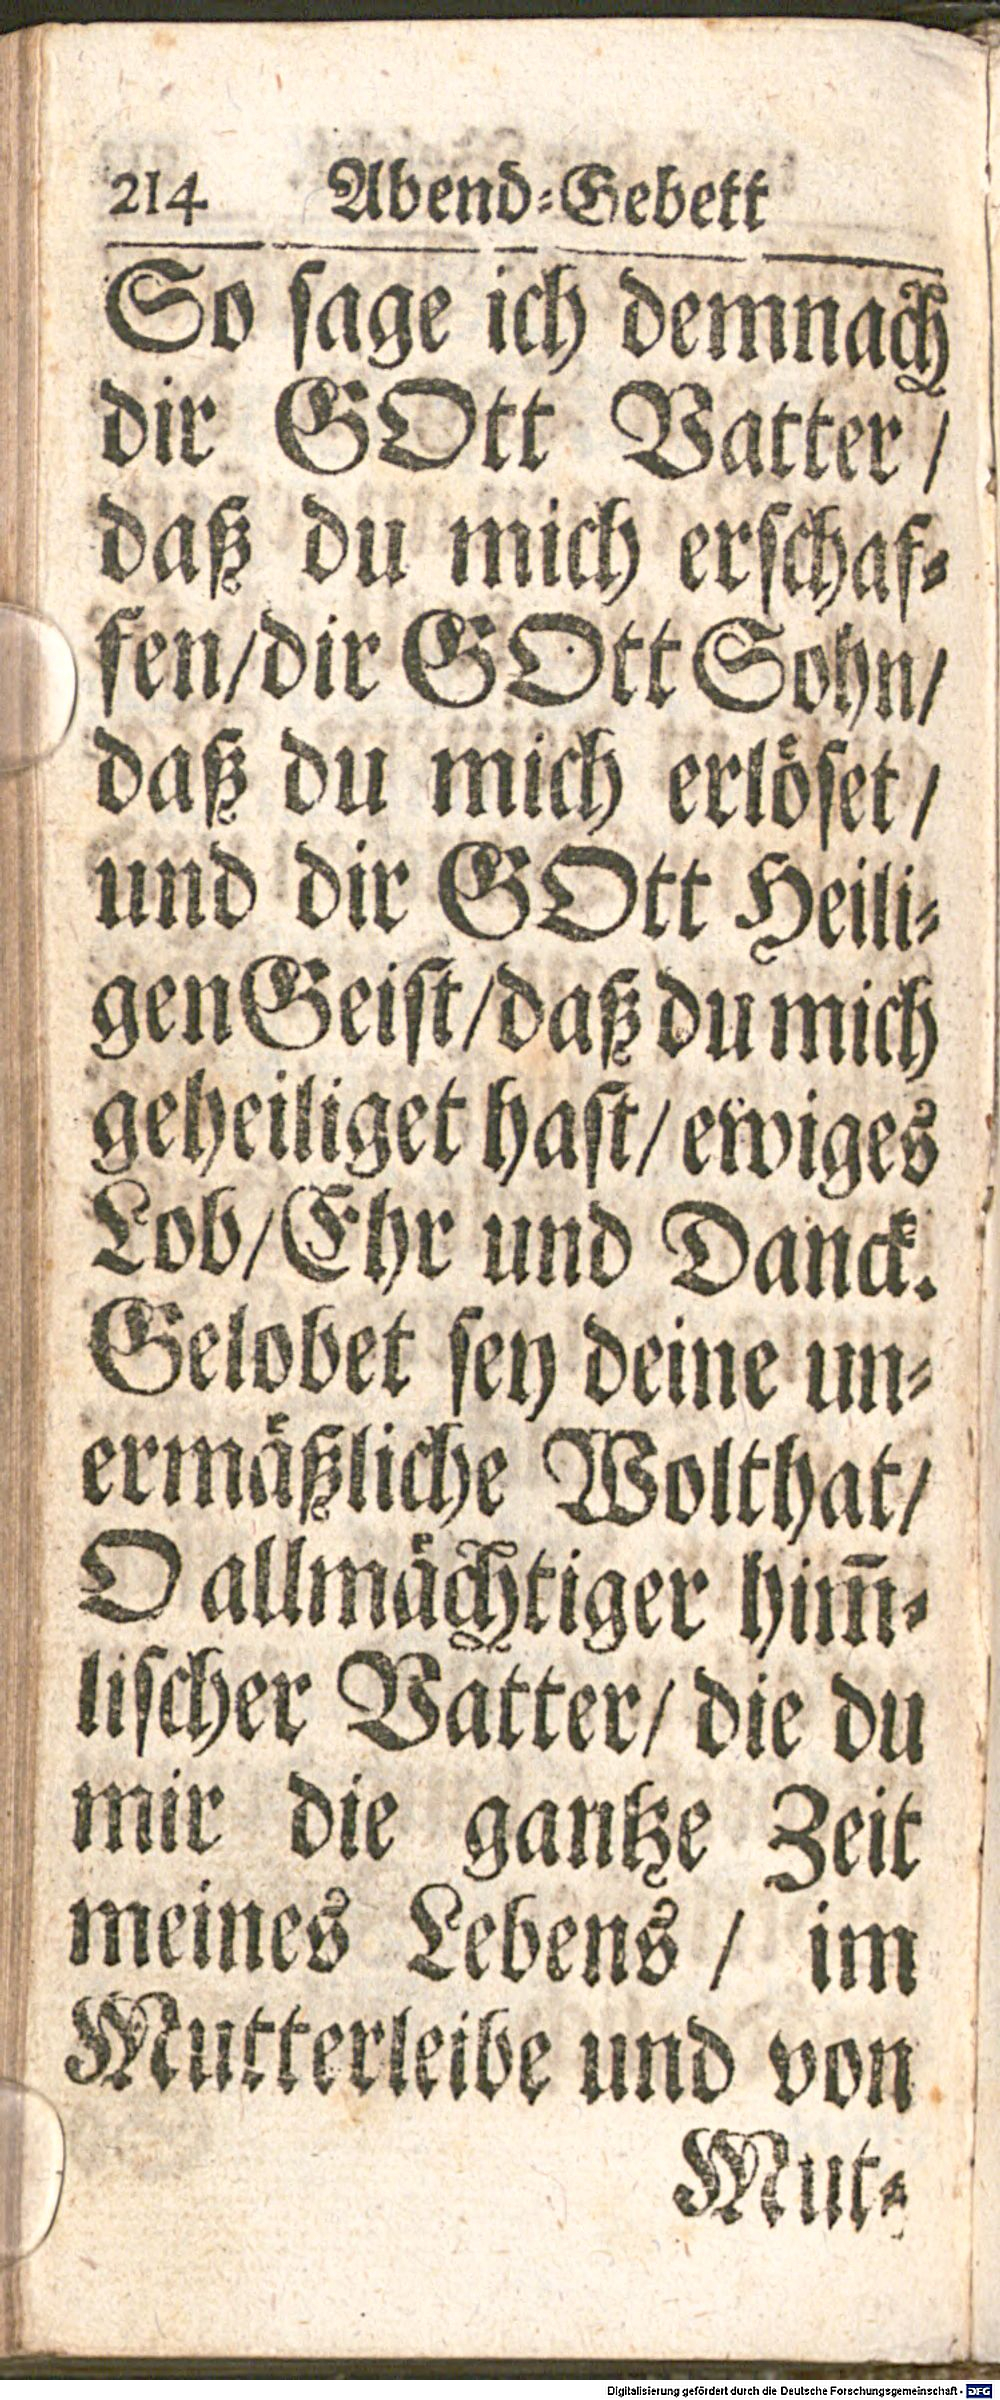 214 Abend⸗Gebett
So ſage ich demnach
dir GOtt Vatter /
daß du mich erſchaf⸗
fen/dir GOtt Sohn/
daß du mich erlöſet /
und dir GOtt Heili⸗
gen Geiſt/daß du mich
geheiliget haſt/ ewiges
Lob/Ehr und Danck.
Gelobet ſey deine un⸗
ermäßliche Wolthat/
O allmächtiger him̅⸗
liſcher Vatter/ die du
mir die gantze Zeit
meines Lebens / im
Mutterleibe und von
Mut⸗
Digitalisierung gefördert durch die Deutsche Forschungsgemeinschaft - DFG